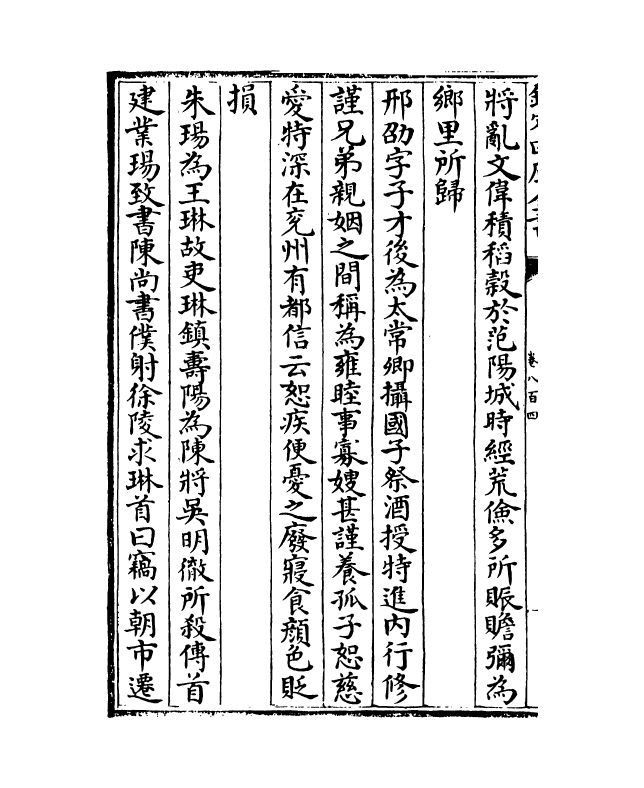 將亂文偉積稻穀於范陽城時經荒儉多所賑贍彌為
鄉里所歸
邢劭字子才後為太常卿攝國子祭酒授特進內行修
謹兄弟親姻之間稱為雍睦事寡嫂甚謹養孤子恕慈
愛特深在兖州有都信云恕疾便憂之廢寢食顔色貶
損
朱瑒為王琳故吏琳鎮壽陽為陳將吳明徹所殺傳首
建業瑒致書陳尚書僕射徐陵求琳首曰竊以朝市遷
卷八百四